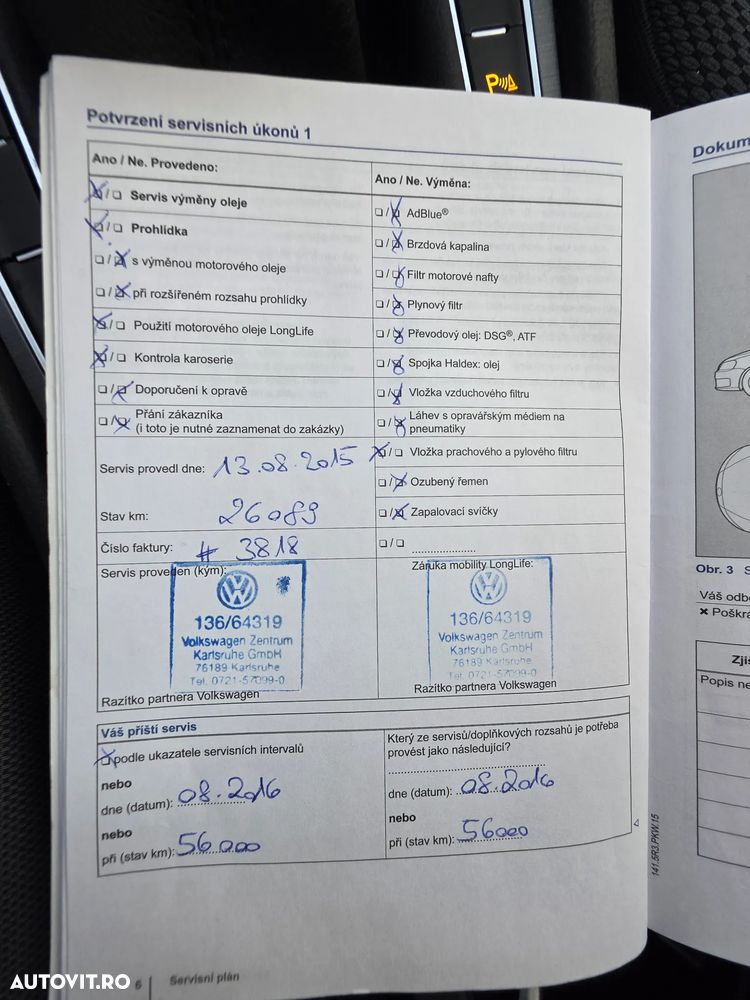 P
Potvrzení servisních úkonů 1
Ano / Ne. Provedeno:
Servis výměny oleje
Prohlídka
s výměnou motorového oleje
při rozšířeném rozsahu prohlídky
Použití motorového oleje LongLife
Kontrola karoserie
Doporučení k opravě
Přání zákazníka
(i toto je nutné zaznamenat do zakázky)
Servis provedl dne: 13.08.2015
Stav km: 26089
Číslo faktury: # 3818
Servis proveden (kým):
136/64319
Volkswagen Zentrum
Karlsruhe GmbH
76189 Karlsruhe
Tel. 0721-57099-0
Razítko partnera Volkswagen
Ano / Ne. Výměna:
AdBlue®
Brzdová kapalina
Filtr motorové nafty
Plynový filtr
Převodový olej: DSG®, ATF
Spojka Haldex: olej
Vložka vzduchového filtru
Láhev s opravářským médiem na
pneumatiky
Vložka prachového a pylového filtru
Ozubený řemen
Zapalovací svíčky
Záruka mobility LongLife:
136/64319
Volkswagen Zentrum
Karlsruhe GmbH
76189 Karlsruhe
Tel. 0721-57099-0
Razítko partnera Volkswagen
Váš příští servis
podle ukazatele servisních intervalů
nebo
dne (datum): 08.2016
nebo
při (stav km): 56000
Který ze servisů/doplňkových rozsahů je potřeba
provést jako následující?
dne (datum): 08.2016
nebo
při (stav km): 56000
141.5R3.PKW.15
6 Servisní plán
Dokum
Obr. 3 S
Váš odbo
× Poškrá
Zjiš
Popis ne
AUTOVIT.RO